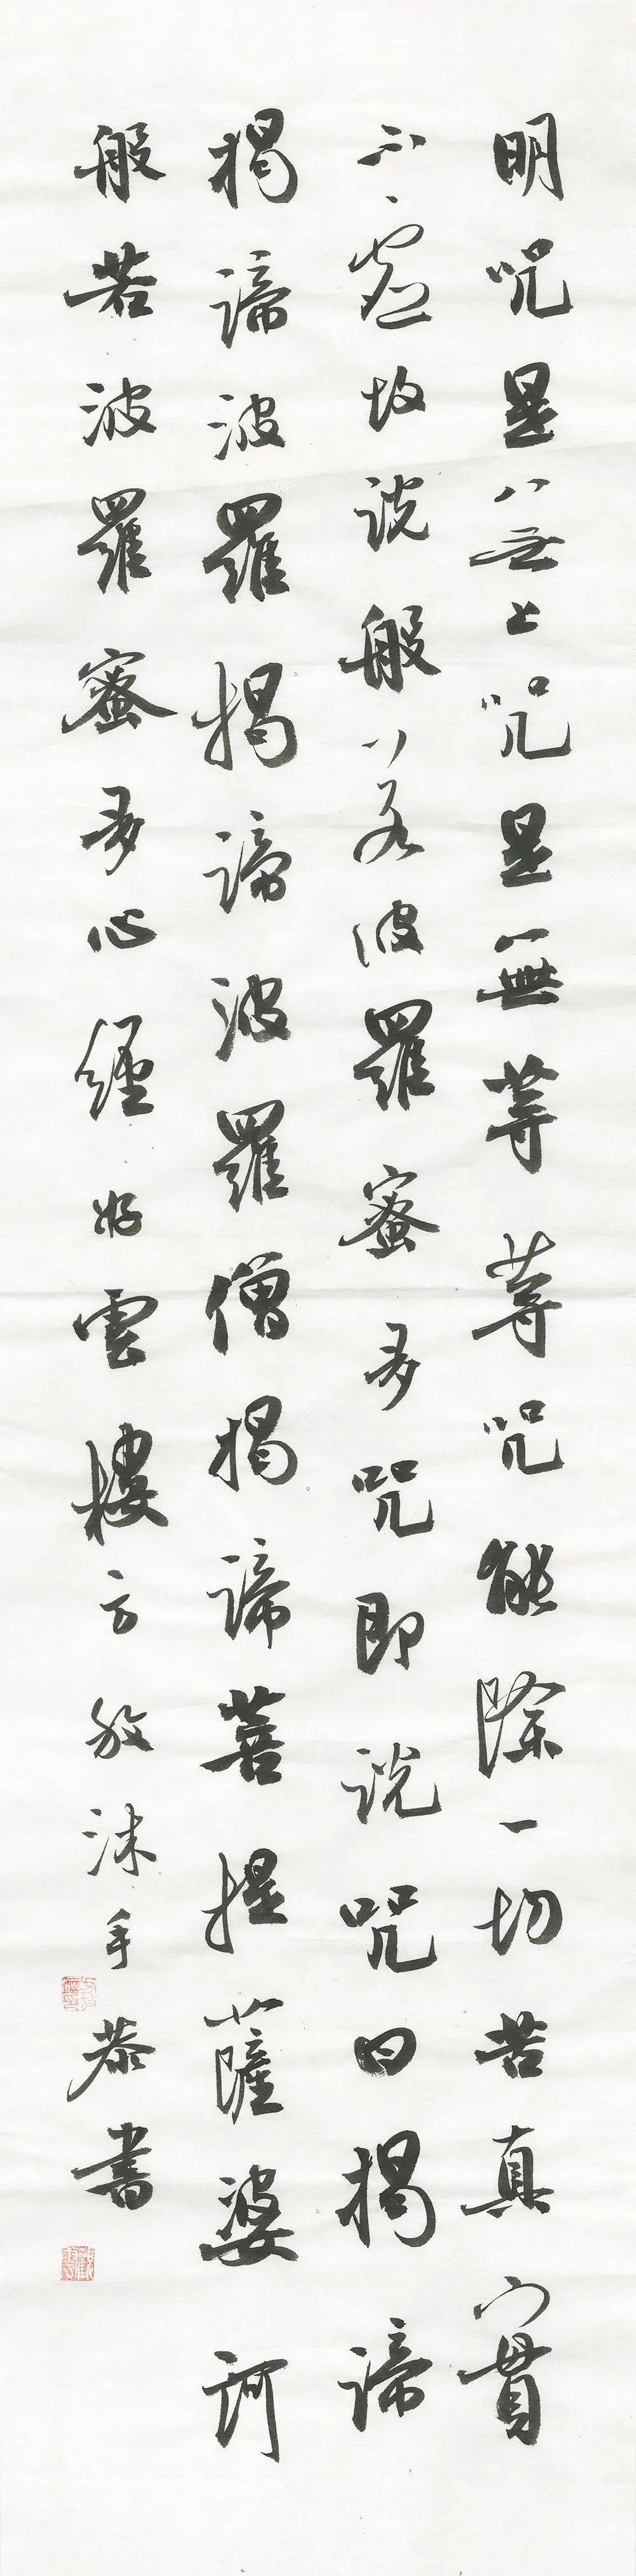 明咒是無上咒是無等等咒能除一切苦真實
不虛故說般若波羅蜜多咒即說咒曰揭諦
揭諦波羅揭諦波羅僧揭諦菩提薩婆訶
般若波羅蜜多心經好雲樓方放沐手恭書